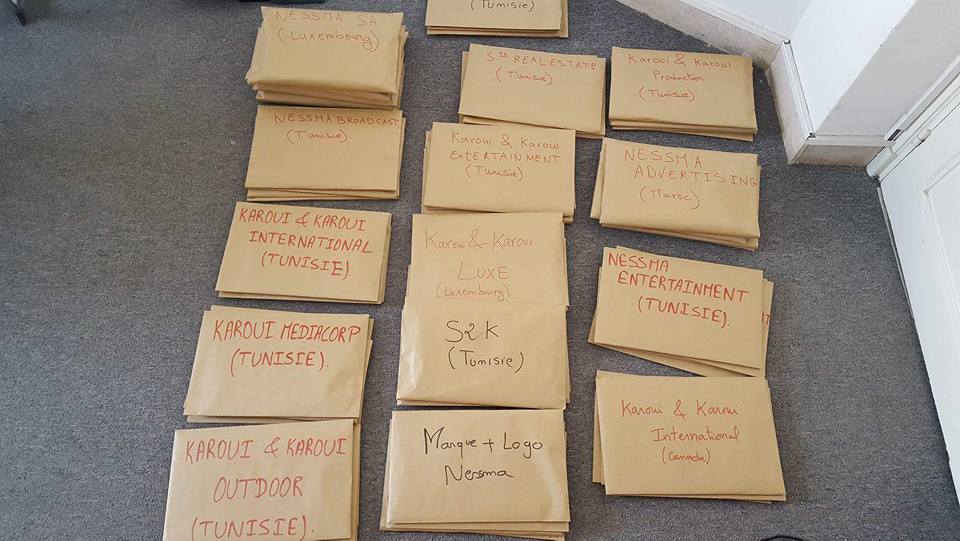 NESSMA SA
(Luxembourg)
NESSMA BROADCAST
(Tunisie)
KAROUI & KAROUI
INTERNATIONAL
(TUNISIE).
KAROUI MEDIACORP
(TUNISIE).
KAROUI & KAROUI
OUTDOOR
(TUNISIE).
(Tunisie)
Sté REAL ESTATE
(Tunisie)
Karoui & Karoui
ENTERTAINMENT
(Tunisie)
Karoui & Karoui
LUXE
(Luxembourg)
S2K
(Tunisie)
Marque + Logo
Nessma
Karoui & Karoui
Production
(Tunisie)
NESSMA
ADVERTISING
(Maroc)
NESSMA
ENTERTAINMENT
(TUNISIE).
Karoui & Karoui
International
(Canada)